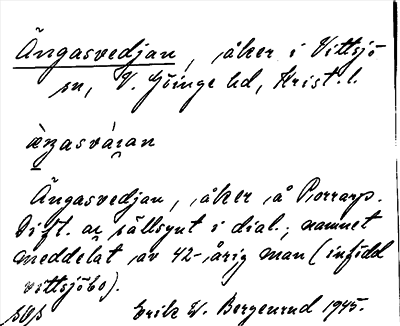 Ängasvedjan, åker i Vittsjö
sn, V. Göinge hd, Krist. l.
Ängasvedjan, åker å Porrarp.
Dift. au sällsynt i dial.; namnet
meddelat av 42-årig man (infödd
vittsjöbo).
Erik W. Bergenrud 1945.